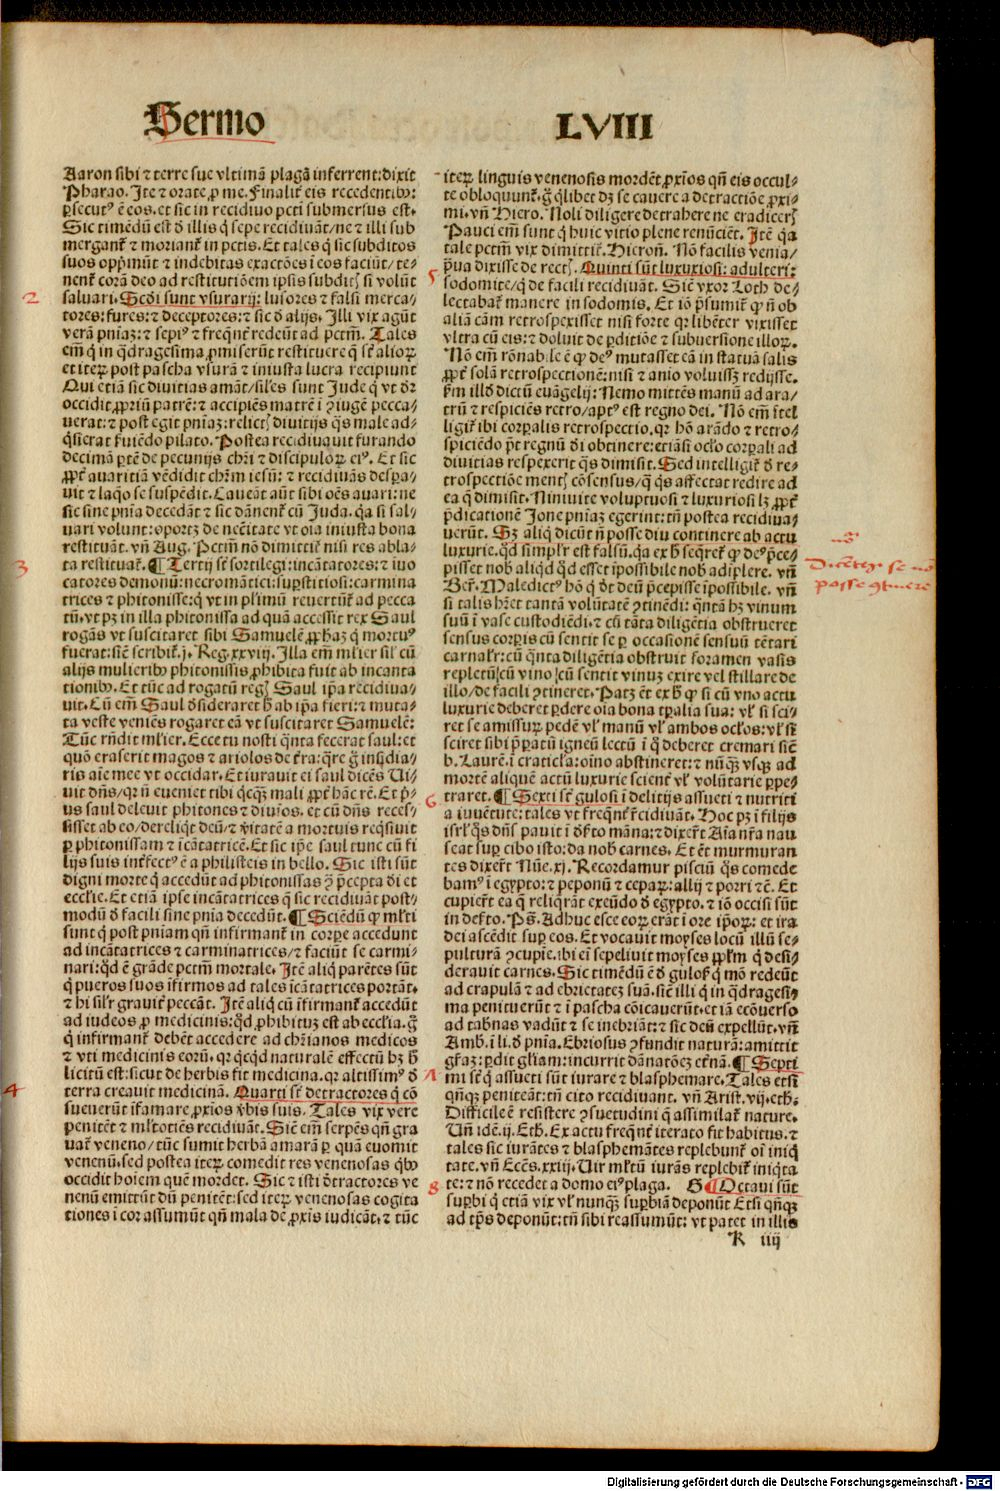 Sermo
LVIII
Aaron sibi ⁊ terre sue vltimā plagā inferrent: dixit
Pharao. Ite ⁊ orate ꝓ me. Finalit̃ eis recedentibꝰ:
ꝑsecutꝰ ē eos. et sic in recidiuo pcti submersus est.
Sic timēdū est ꝺ̄ illis q̇ sepe recidiuāt/ne ⁊ illi sub
mergant̃ ⁊ moriant̃ in pctis. Et tales q̇ sic subditos
suos opp̄mūt ⁊ indebitas exactōes ī eos faciūt/te-
nent̃ corā deo ad restitutiōem ipsis subditꝭ si volūt
saluari. Scd̄i sunt vsurarij: lusores ⁊ falsi merca-
tores: fures: ⁊ deceptores: ⁊ sic ꝺ̄ alijs. Illi vix agūt
verā pniaꝫ: ⁊ sepiꝰ ⁊ freq̄nt̃ redeūt ad pctm̄. Tales
em̄ q̇ in q̄dragesima ꝓmiserūt restituere q̄ st̄ alioꝝ
et iteꝝ post pascha vsurā ⁊ iniusta lucra recipiunt
Qui etiā sic diuitias amāt/siłes sunt Jude q̇ vt ꝺr̄
occidit ꝓpriū patrē: ⁊ accipiēs matrē ī ꝯiugē pecca-
uerat: ⁊ post egit pniaꝫ: relictꝭ diuitijs q̄s male ad-
q̇sierat ẜuiēdo pilato. Postea recidiuauit furando
decimā ꝑtē de pecunijs chr̄i ⁊ discipuloꝝ eiꝰ. Et sic
ꝓpt̃ auaritiā vēdidit chr̄m iesū: ⁊ recidiuās desꝑa-
uit ⁊ laq̄o se suspēdit. Caueāt aūt sibi oēs auari: ne
sic sine pnia decedāt ⁊ sic dānent̃ cū Juda. q̄a si sal-
uari volunt: oportꝫ de nec̄itate vt oīa iniusta bona
restituāt. vn̄ Aug. Pctm̄ nō dimittit̃ nisi res abla-
ta restituat̃. ¶ Tertij st̄ sortilegi: incātatores: ⁊ iuo
catores demonū: necromātici: suꝑstitiosi: carmina
trices ⁊ phitonisse: q̄ vt in pl̄imū reuertūt̃ ad pecca
tū. vt pꝫ in illa phitonissa ad quā accessit rex Saul
rogās vt suscitaret sibi Samuelē ꝓph̄aꝫ q̇ mortuꝰ
fuerat: sicē scribit̃. j. Reg. xxviij. Illa em̄ mĺier siĺ cū
alijs mulieribꝰ phitonissis ꝓhibita fuit ab incanta
tionibꝰ. Et tūc ad rogatū regꝭ Saul ip̄a recidiua-
uit. Cū em̄ Saul ꝺ̄sideraret ħ ab ip̄a fieri: ⁊ muta-
ta veste veniēs rogaret eā vt suscitaret Samuelē:
Tūc rn̄dit mĺier. Ecce tu nosti q̄nta fecerat saul: et
quō eraserit magos ⁊ ariolos de t̃ra: q̄re g̊ insidia-
ris aīe mee vt occidar. Et iurauit ei saul dicēs Ui-
uit dn̄s/qꝛ nō eueniet tibi q̇cq̄ꝫ mali ꝓpt̃ hāc rē. Et p̄-
us saul deleuit phitones ⁊ diuīos. et cū dn̄s reces-
sisset ab eo/dereliq̇t deū/⁊ v̓itatē a mortuis req̇siuit
ꝑ phitonissam ⁊ īcātatricē. Et sic ip̄e saul tunc cū fi
lijs suis int̓fectꝰ ē a philisteis in bello. Sic isti sūt
digni morte q̇ accedūt ad phitonissas ꝯ̄ p̄cepta ꝺ̄i et
eccĺie. Et etiā ipse incātatrices q̄ sic recidiuāt post-
modū ꝺ̄ facili sine pnia decedūt. ¶ Sciēdū ꝙ mĺti
sunt q̇ post pniam qn̄ infirmant̃ in corꝑe accedunt
ad incātatrices ⁊ carminatrices/⁊ faciūt se carmi-
nari: qd̄ ē grāde pctm̄ mortale. Itē aliq̇ parētes sūt
q̇ pueros suos īfirmos ad tales īcātatrices portāt.
⁊ hi siĺr grauit̃ peccāt. Itē aliq̇ cū īfirmant̃ accedūt
ad iudeos ꝓ medicinis: qd̄ ꝓhibituꝫ est ab eccĺia. g̊
q̇ infirmant̃ debēt accedere ad chr̄ianos medicos
⁊ vti medicinis eorū. qꝛ q̇cq̇d naturalē effectū hꝫ ħ
licitū est: sicut de herbis fit medicina. qꝛ altissimꝰ ꝺ̄
terra creauit medicinā. Quarti st̄ detractores q̇ cō
sueuerūt īfamare ꝓxīos ṽbis suis. Tales vix vere
penitēt ⁊ mĺtotiēs recidiuāt. Sic em̄ serpēs qn̄ gra
uat̃ veneno/tūc sumit herbā amarā ꝑ quā euomit
venenū. sed postea iteꝝ comedit res venenosas q̇bꝰ
occidit hoīem quē mordet. Sic ⁊ isti ꝺ̄tractores ve
nenū emittūt dū penitēt: sed iteꝝ venenosas cogita
tiones ī cor assumūt qn̄ mala de ꝓxīs iudicāt. ⁊ tūc
iteꝝ linguis venenosis mordēt ꝓxīos qn̄ eis occul-
te obloquunt̃. g̊ q̇libet dꝫ se cauere a detractiōe ꝓxi-
mi. vn̄ Hiero. Noli diligere detrahere ne eradicerꝭ
Pauci em̄ sunt q̇ huic vitio plene renūciēt. Itē q̄a
tale pctm̄ vix dimittit̃. Hieron̄. Nō facilis venia/
p̄ua dixisse de rectꝭ. Quinti sūt luxuriosi: adulteri:
sodomite/q̇ de facili recidiuāt. Sic vxor Loth de-
lectabat̃ manere in sodomis. Et iō p̄sumit̃ ꝙ nō ob
aliā cām retrospexisset nisi forte qꝛ libēter vixisset
vltra cū eis: ⁊ doluit de ꝑditiōe ⁊ subuersione illoꝝ.
Nō em̄ rōnabile ē ꝙ deꝰ mutasset eā in statuā salis
ꝓpt̃ solā retrospectionē: nisi ⁊ aīo voluissꝫ redijsse.
ẜm illd̄ dictū euāgelij: Nemo mittēs manū ad ara/
trū ⁊ respiciēs retro/aptꝰ est regno dei. Nō em̄ ītel
ligit̃ ibi corꝑalis retrospectio. qꝛ hō arādo ⁊ retro-
spiciēdo pōt regnū ꝺ̄i obtinere: etiāsi ocĺo corꝑali ad
diuitias respexerit q̄s dimisit. Sed intelligit̃ ꝺ̄ re-
trospectiōe mentꝭ cōsensus/q̇ q̇s affectat redire ad
ea q̄ dimisit. Niniuite voluptuosi ⁊ luxuriosi lꝫ ꝓpt̃
p̄dicationē Jone pniaꝫ egerint: tn̄ postea recidiua-
uerūt. Sꝫ aliq̇ dicūt nō posse diu continere ab actu
luxurie. qd̄ simpĺr est falsū. q̄a ex ħ seq̄ret̃ ꝙ deꝰ p̄ce-
pisset nob̄ aliqd̄ qd̄ esset īpossibile nob̄ adīplere. vn̄
Ber̄. Maledictꝰ hō q̇ ꝺt̄ deū p̄cepisse īpossibile. vn̄
si talis hēret tantā volūtatē ꝯtinēdi: q̄ntā hꝫ vinum
suū ī vase custodiēdi. ⁊ cū tāta diligētia obstrueret
sensus corꝑis cū sentit se ꝑ occasionē sensuū tētari
carnaĺr: cū q̄nta diligētia obstruit foramen vasis
repletū cū vino cū sentit vinuꝫ exire vel stillare de
illo/de facili ꝯtineret. Patꝫ ēt ex ħ ꝙ si cū vno actu
luxurie deberet ꝑdere oīa bona tꝑalia sua: vĺ si sci-
ret se amissuꝝ pedē vĺ manū vĺ ambos ocĺos: vĺ si
sciret sibi p̄paratū igneū lectū ī q̇ deberet cremari sicē
b. Laurē. ī craticĺa: oīno abstineret: ⁊ nūq̄ꝫ vsqꝫ ad
mortē aliquē actū luxurie scient̃ vĺ volūtarie ꝑpe-
traret. ¶ Sexti st̄ gulosi ī delitijs assueti ⁊ nutriti
a iuuētute: tales vt freq̄nt̃ recidiuāt. Hoc pꝫ ī filijs
isrĺ q̄s dn̄s pauit ī ꝺ̄s̓to māna: ⁊ dixer̃t Aīa nr̄a nau
seat suꝑ cibo isto: da nob̄ carnes. Et ēt murmuran
tes dixer̃t Nūe. xj. Recordamur pisciū q̄s comede
bamꝰ ī egypto: ⁊ peponū ⁊ cepaꝝ: allij ⁊ porri ⁊c̄. Et
cupier̃t ea q̄ reliq̄rāt exeūdo ꝺ̄ egypto. ⁊ iō occisi sūt
in des̓to. Pꝫ. Adhuc esce eoꝝ erāt ī ore ip̄oꝝ: et ira
dei ascēdit suꝑ eos. Et vocauit moyses locū illū se-
pulturā ꝯcupīe. ibi em̄ sepeliuit moyses ppĺm q̇ desi-
derauit carnes. Sic timēdū ē ꝺ̄ gulosꝭ q̇ mō redeūt
ad crapulā ⁊ ad ebrietateꝫ suā. sicē illi q̇ in q̄dragesi-
ma penituerūt ⁊ ī pascha cōicauerūt. et iā ecōuerso
ad tab̓nas vadūt ⁊ se inebriāt: ⁊ sic deū expellūt. vn̄
Amb. ī li. ꝺ̄ pnīa. Ebriosus ꝯfundit naturā: amittit
gr̄aꝫ: ꝑdit gĺiam: incurrit dānatōeꝫ et̓nā. ¶ Septi
mi st̄ q̇ assueti sūt iurare ⁊ blasphemare. Tales etsi
qn̄qꝫ peniteāt: tn̄ cito recidiuant. vn̄ Arist. vij. eth.
Difficile ē resistere ꝯsuetudini q̄ assimilat̃ nature.
Un̄ idē. ij. Eth. Ex actu freq̄nt̃ iterato fit habitus. ⁊
tales sic iurātes ⁊ blasphemātes replebunt̃ oī iniq̇
tate. vn̄ Ecēs. xxiij. Uir mĺtū iurās replebit̃ iniq̇ta
te: ⁊ nō recedet a domo eiꝰ plaga. G ¶ Octaui sūt
suꝑbi q̇ etiā vix vĺ nunq̄ꝫ suꝑbiā deponūt Etsi qn̄qꝫ
ad tp̄s deponūt: tn̄ sibi reassumūt: vt patet in illis
K iiij
2
3
4
5
6
7
8
Dicētes se nō
posse ꝯtinere
Digitalisierung gefördert durch die Deutsche Forschungsgemeinschaft - DFG